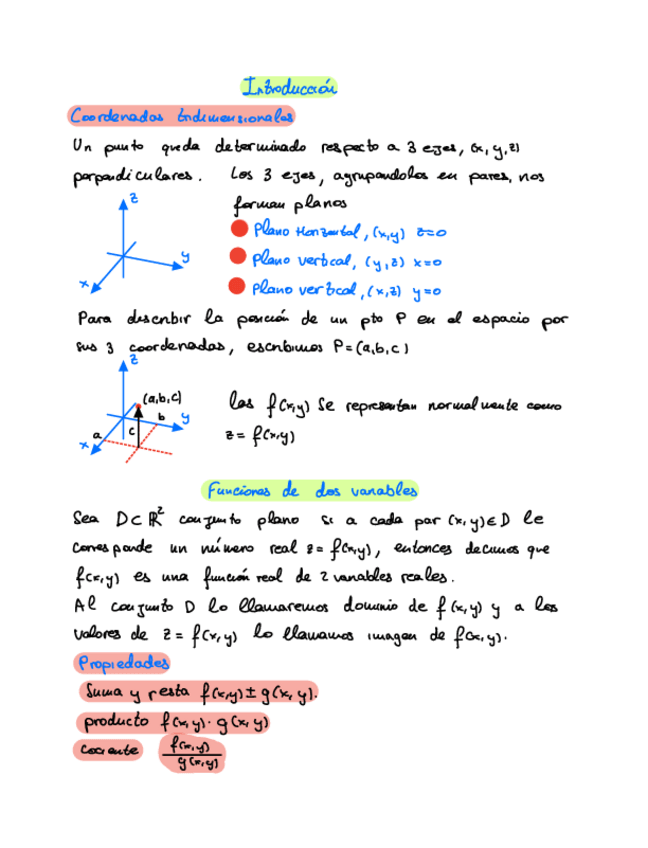 Introducción
Coordenadas tridimensionales
Un punto queda determinado respecto a 3 ejes, (x, y, z)
perpendiculares. Los 3 ejes, agrupandolos en pares, nos
forman planos
z
y
x
Plano Horizontal, (x,y) z=0
Plano vertical, (y,z) x=0
Plano vertical, (x,z) y=0
Para describir la posición de un pto P en el espacio por
sus 3 coordenadas, escribimos P=(a,b,c)
z
(a,b,c)
b
y
a
c
x
las f(x,y) se representan normalmente como
z = f(x,y)
Funciones de dos variables
Sea D⊂ℝ² conjunto plano si a cada par (x,y)∈D le
corresponde un número real z=f(x,y), entonces decimos que
f(x,y) es una función real de 2 variables reales.
Al conjunto D lo llamaremos dominio de f(x,y) y a los
valores de z=f(x,y) lo llamamos imagen de f(x,y).
Propiedades
Suma y resta f(x,y)±g(x,y).
producto f(x,y)·g(x,y)
cociente f(x,y)/g(x,y)